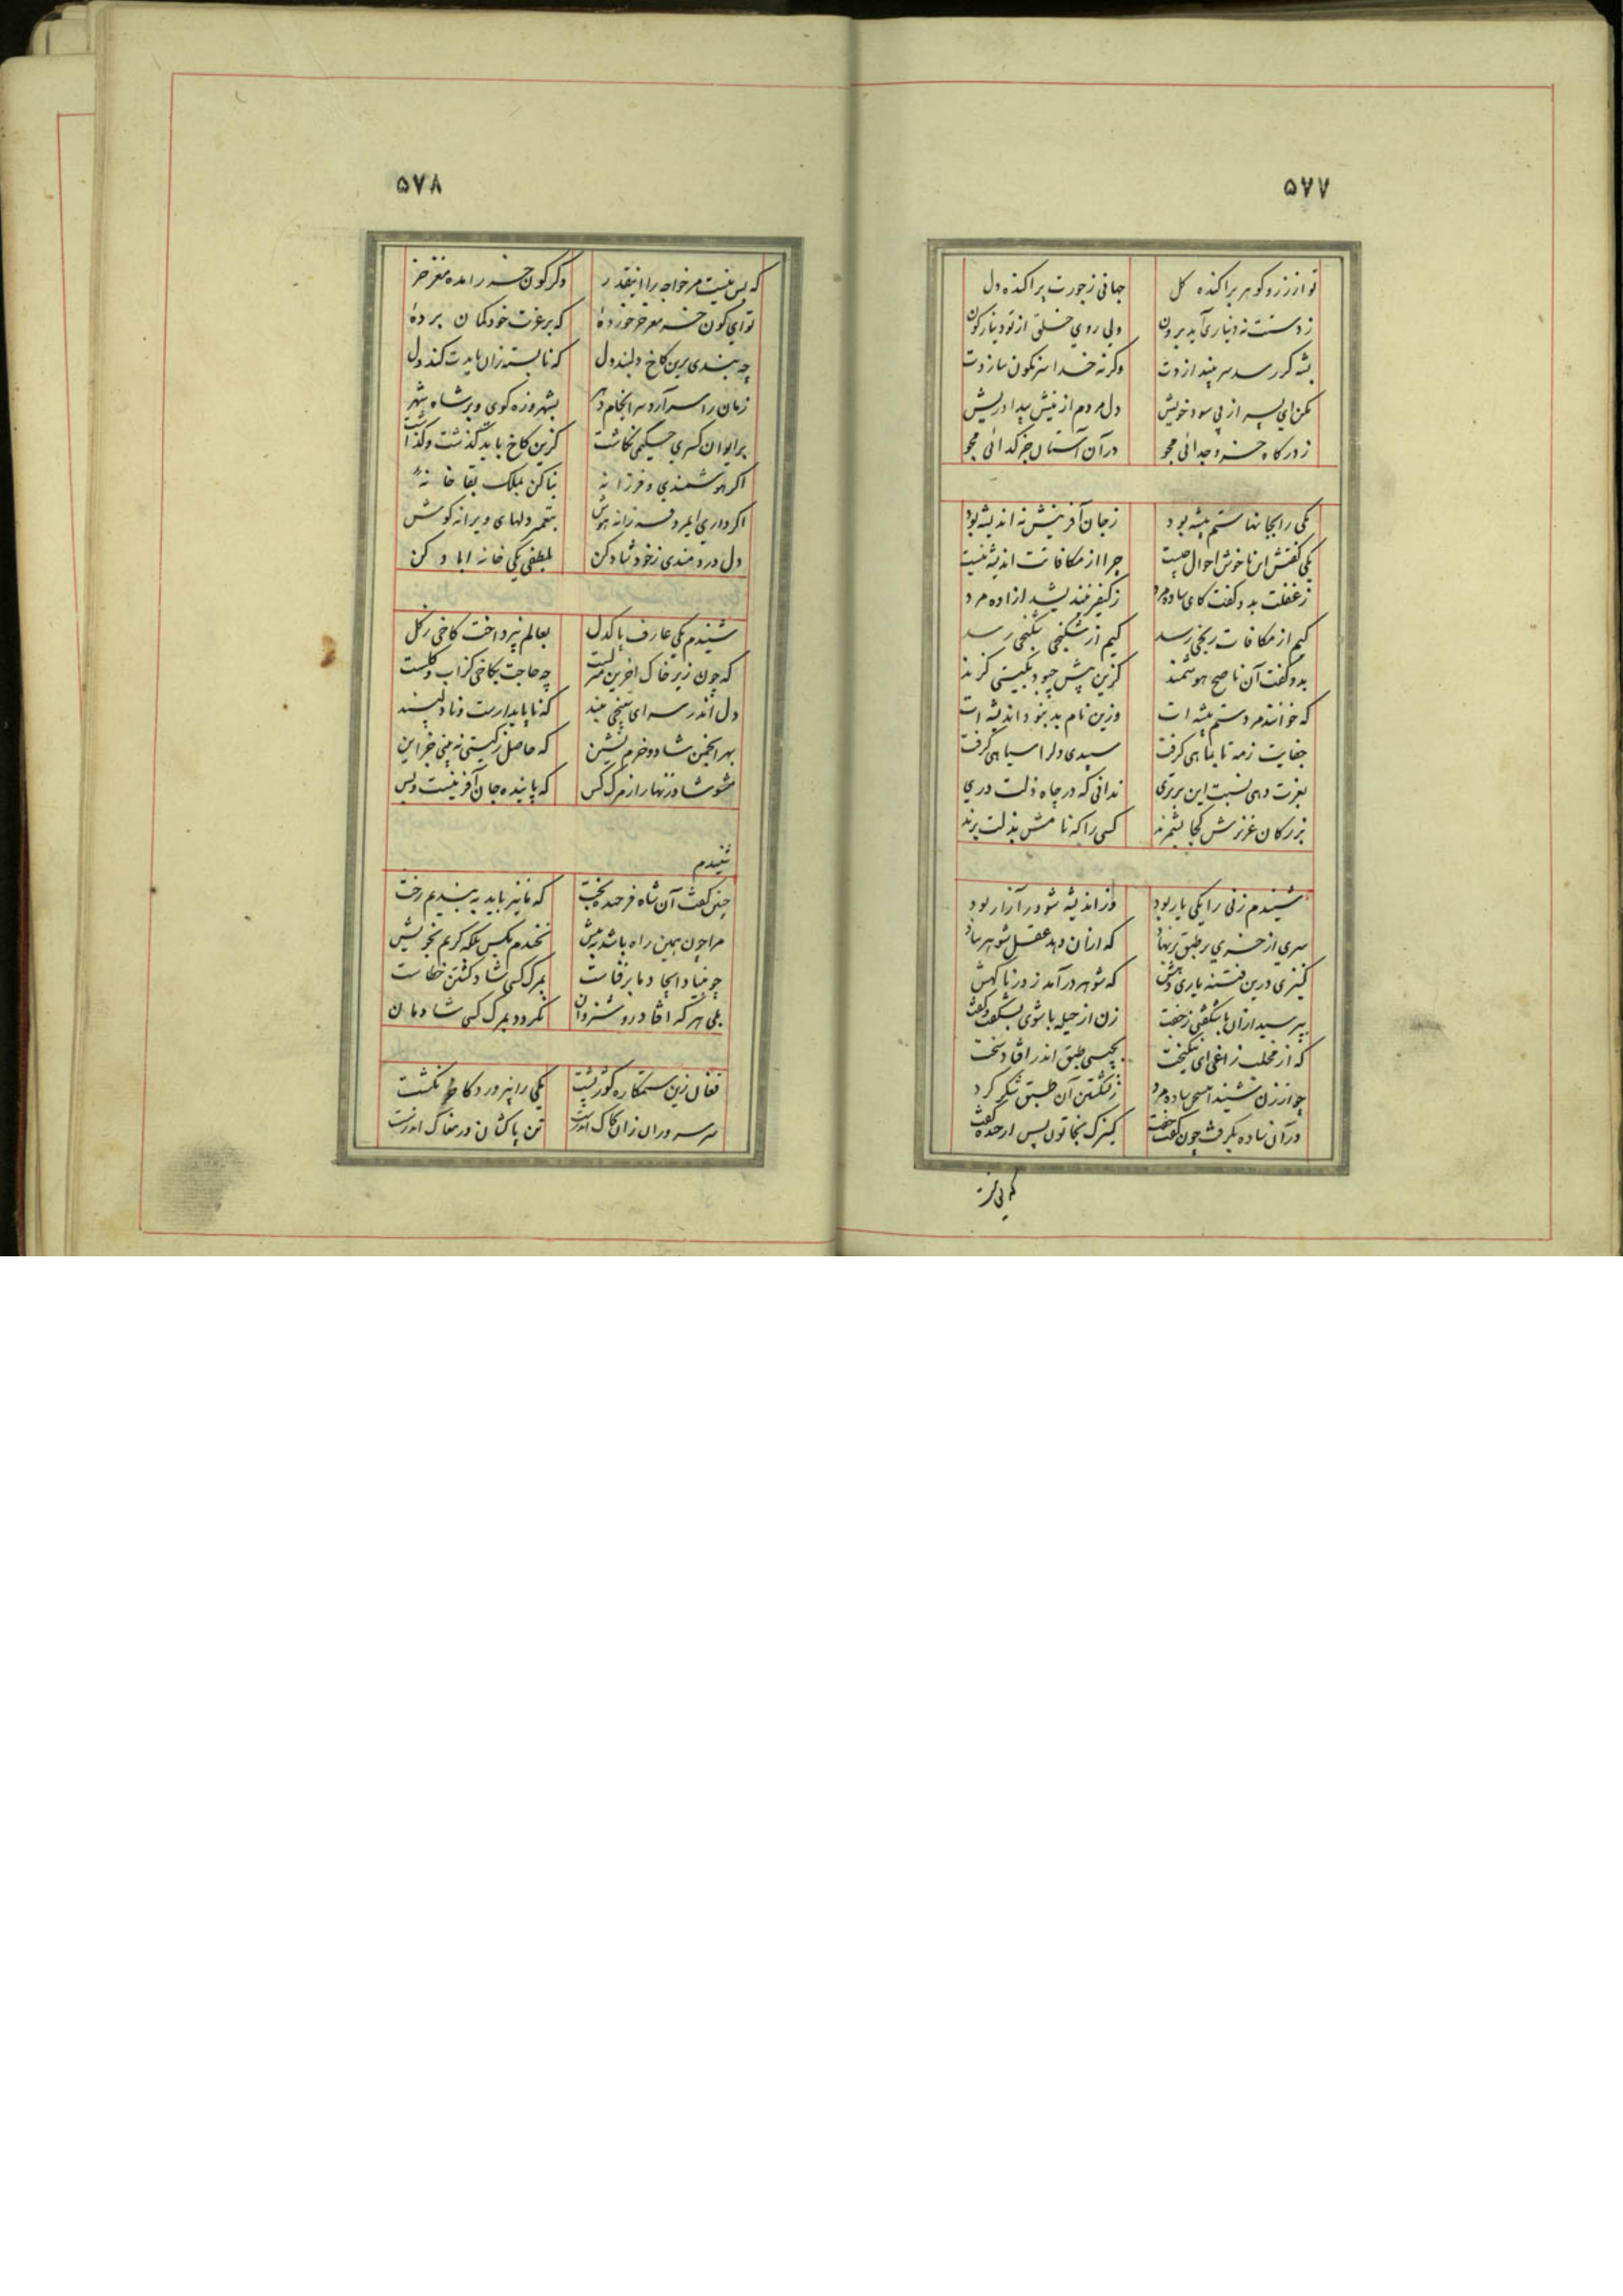 ۵۷۷
تو از زر و گوهر پراکنده کل جهانی ز جورت پراکنده دل
ز دستت نه دیناری آید برون ولی روی خلقی از تو دینارگون
بشه گر رسد سر وگرنه خدا سرنگون سازدت
مکن ای پسر از پی سود خویش دل مردم از نیش بیداد ریش
ز درگاه خسرو جدائی مجو در آن آستان جز گدائی مجو
یکی را بجانها ستم پیشه بود ز جان آفرینش نه اندیشه بود
یکی گفتش این ناخوش احوال چیست چرا از مکافاتت اندیشه نیست
ز غفلت بدو گفت کای ساده مرد ز کیفر نیندیشد آزاده مرد
کیم از مکافات رنجی رسد کیم از شکنجی شکنجی رسد
بدو گفت آن ناصح هوشمند کزین بیش چبود بگیتی گزند
که خوانند مردم ستم پیشه ات وزین نام بد نبود اندیشه ات
جفایت ز مه تا بماهی گرفت سپیدی دلرا سیاهی گرفت
بعزت دهی نسبت این برتری ندانی که در چاه ذلت دری
بزرگان عزیزش کجا بشمرند کسی را که نامش بذلت برند
شنیدم زنی را یکی یار بود وز اندیشه شو در آزار بود
سری از خری بر طبق برنهاد که از آن دهد عقل شوهر بباد
کنیزی درین فتنه یاری دهش که شوهر درآمد ز در ناگهش
بپرسید از آن با شگفتی ز جفت زن از حیله با شوی بشگفت و گفت
که از مخلب زاغی ای نیکبخت بچستی طبق اندر افتاد سخت
چو از زن شنید این سخن ساده مرد ز نشکستن آن طبق شکر کرد
در آن ساده بگرفت چون گفت جفت کنیزک بخاتون پس از خنده گفت
که بی مغز
۵۷۸
که بس نیست مر خواجه را اینقدر دگر کون خر را مده مغز خر
تو ای کون خر مغز خر خورده که بر عزت خود گمان برده
چه بندی برین کاخ دلبند دل که نابسته زان بایدت کند دل
زمان را سرآرد سرانجام دهر بشهر وزه کوی و بر شاه شهر
بر ایوان کسری حکیمی نگاشت کزین کاخ باید گذشت و گذاشت
اگر هوشمندی و فرزانه بنا کن بملک بقا خانه
اگر داری ایمرد فرزانه هوش بتعمیر دلهای ویرانه کوش
دل دردمندی ز خود شاد کن بلطفی یکی خانه اباد کن
شنیدم یکی عارف پاکدل بعالم نپرداخت کاخی ز گل
که چون زیر خاک اخرین منزلست چه حاجت بکاخی کز اب و گلست
دل اندر سرای سپنجی مبند که ناپایدارست و نادلپسند
بهر انجمن شاد و خرم نشین که حاصل ز گیتی نه بینی جز این
مشو شاد زنهار از مرگ کس که پاینده جان آفرینست و بس
شنیدم
چنین گفت آن شاه فرخنده بخت که ما نیز باید به بندیم رخت
مرا چون همین راه باشد به پیش نخندم بکس بلکه گریم بخویش
چو بنیاد ایجاد ما بر فناست بمرگ کسی شاد گشتن خطاست
بلی هر که افتاد روشنروان نگردد بمرگ کسی شادمان
فغان زین ستمکاره گوژپشت یکی را نپرورد کاخر نکشت
سر سروران زان بخاک اندرست تن پاکشان در مغاک اندرست